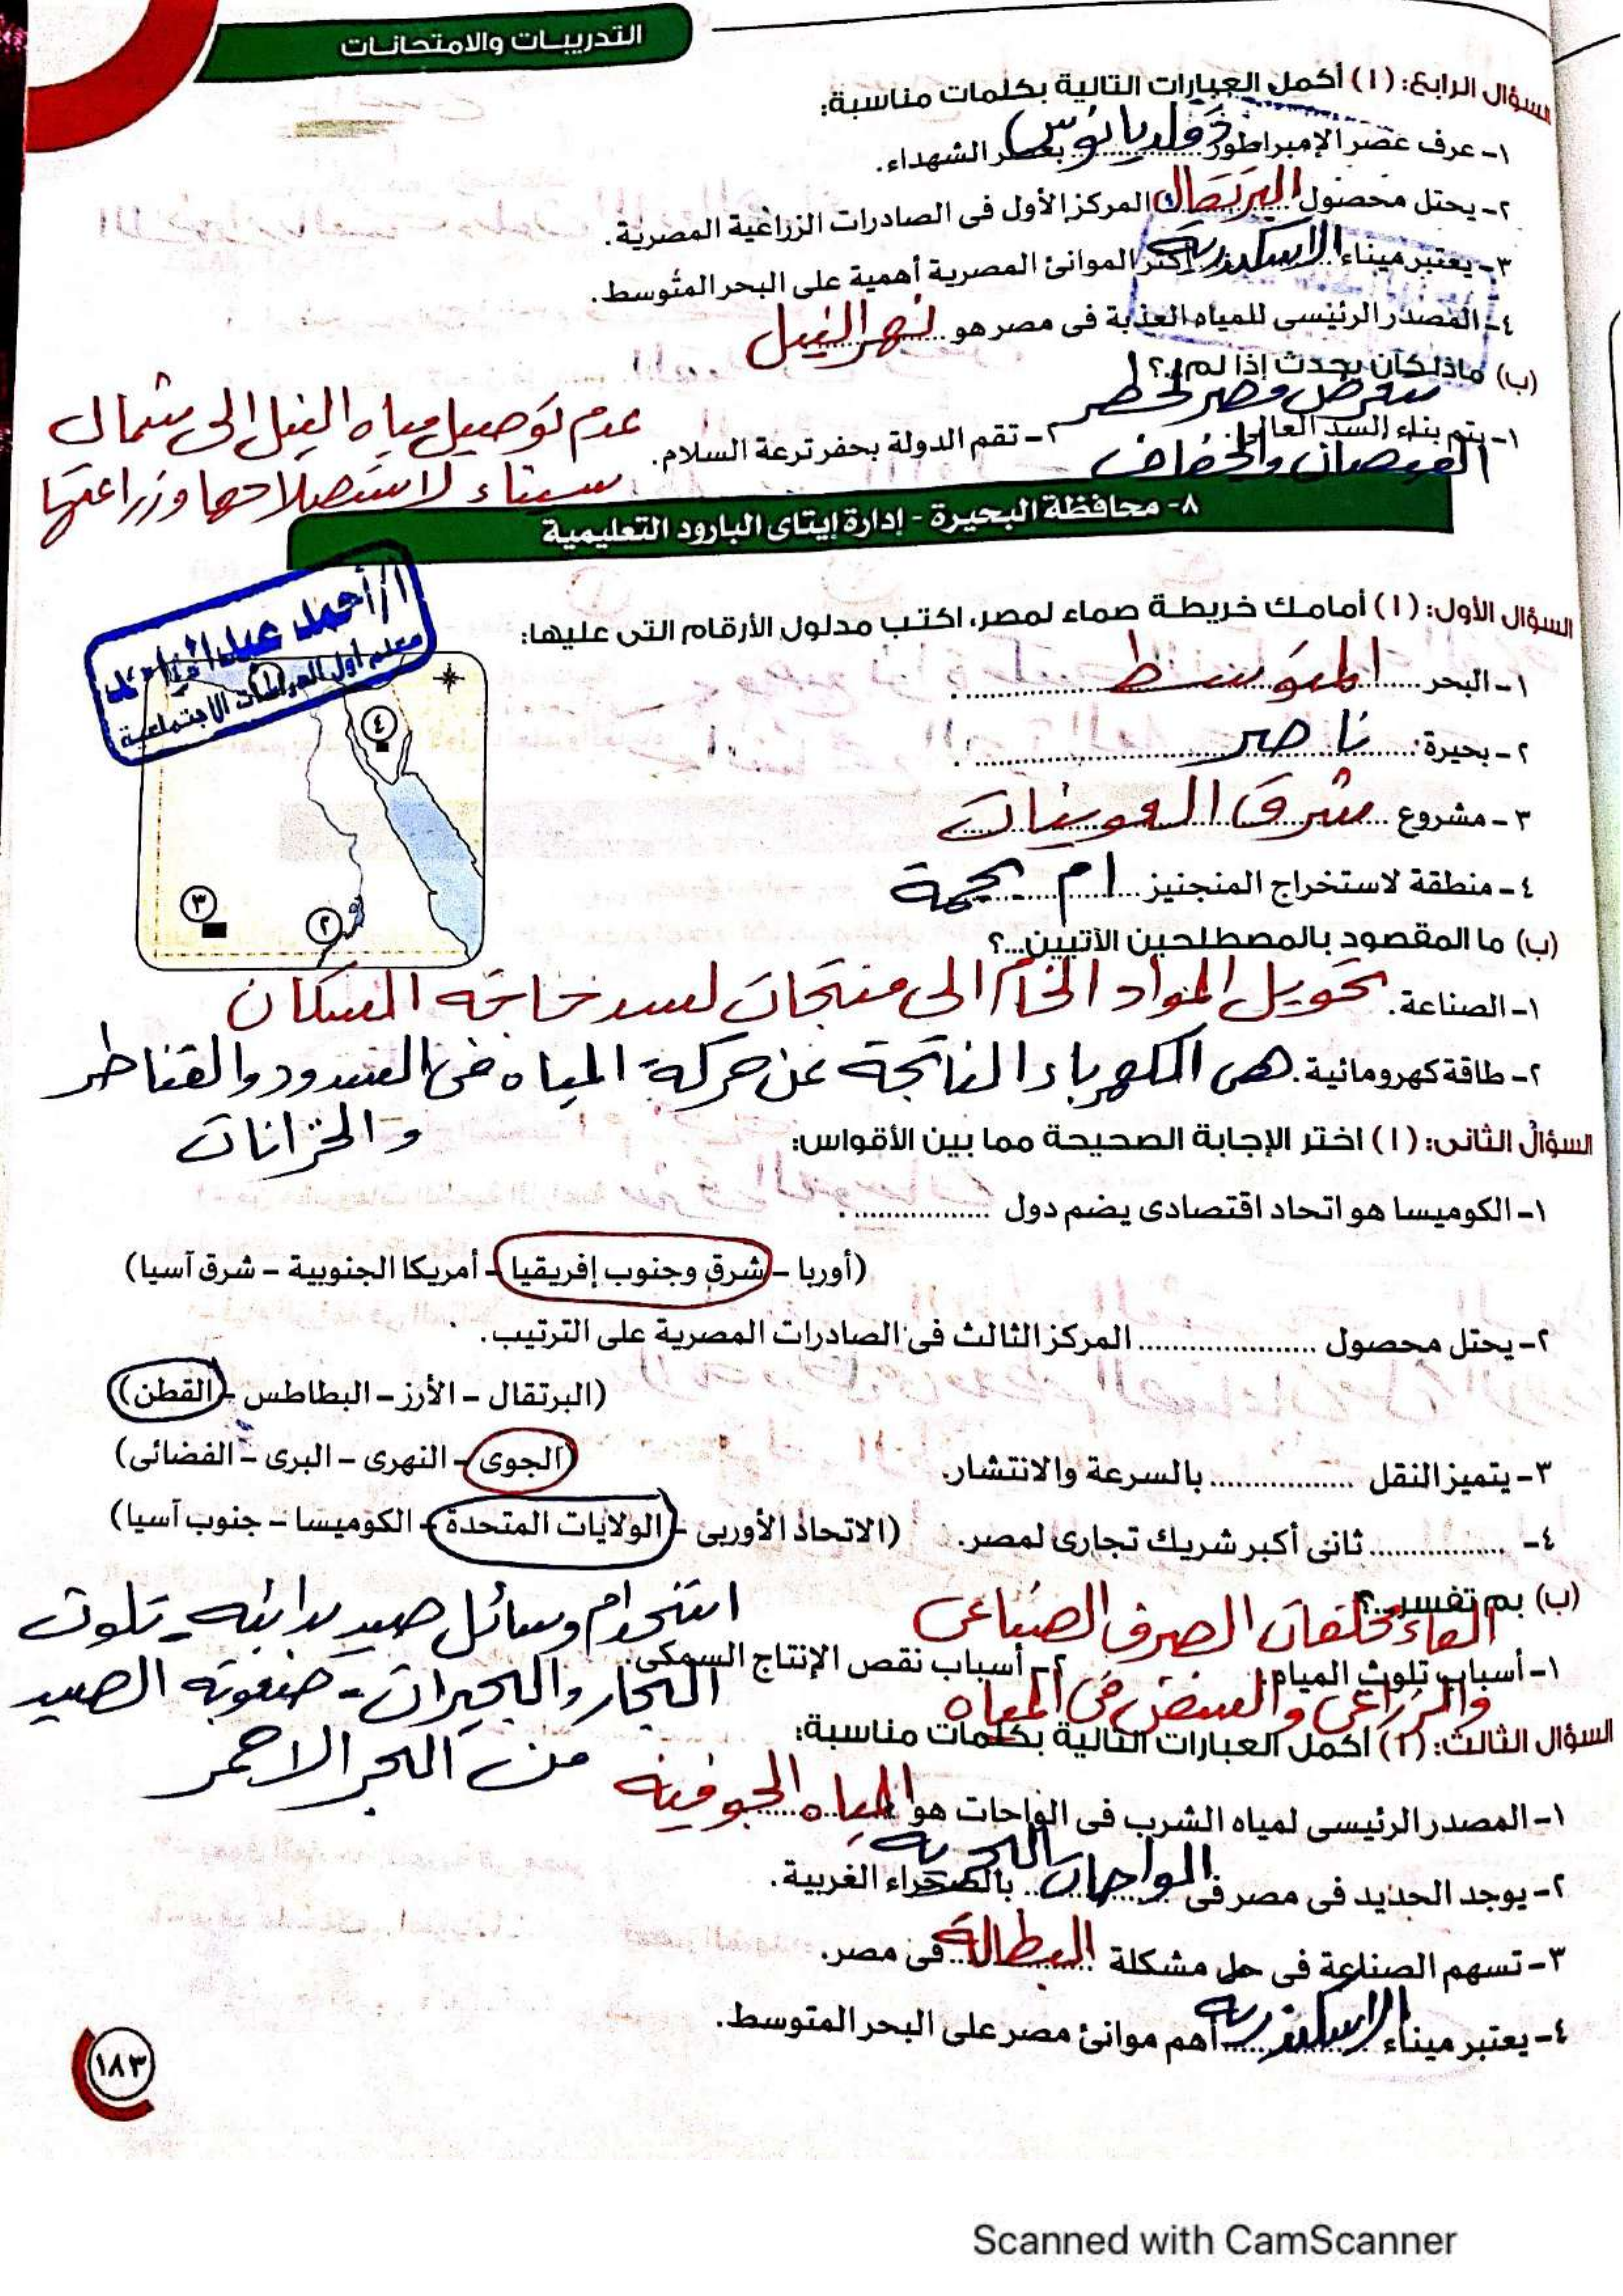 التدريبات والامتحانات
السؤال الرابع: (١) أكمل العبارات التالية بكلمات مناسبة:
١- عرف عصر الإمبراطور دقلديانوس بعصر الشهداء.
٢- يحتل محصول البرتقال المركز الأول فى الصادرات الزراعية المصرية.
٣- يعتبر ميناء الاسكندرية أكثر الموانئ المصرية أهمية على البحر المتوسط.
٤- المصدر الرئيسى للمياه العذبة فى مصر هو نهر النيل
(ب) ماذا كان يحدث إذا لم..؟
١- يتم بناء السد العالى. ستعرض مصر لخطر الفيضان والجفاف
٢- تقم الدولة بحفر ترعة السلام. عدم توصيل مياه النيل الى شمال
سيناء لاستصلاحها وزراعتها
٨- محافظة البحيرة - إدارة إيتاى البارود التعليمية
السؤال الأول: (١) أمامك خريطة صماء لمصر، اكتب مدلول الأرقام التى عليها:
أ/أحمد
معلم أول الدراسات الاجتماعية
١- البحر المتوسط
٢- بحيرة ناصر
٣- مشروع شرق العوينات
٤- منطقة لاستخراج المنجنيز ام بجمة
٤
٣
٢
(ب) ما المقصود بالمصطلحين الآتيين...؟
١- الصناعة. تحويل المواد الخام الى منتجات لسد حاجة السكان
٢- طاقة كهرومائية. هى الكهرباء الناتجة عن حركة المياه فى السدود والقناطر
والخزانات
السؤال الثانى: (١) اختر الإجابة الصحيحة مما بين الأقواس:
١- الكوميسا هو اتحاد اقتصادى يضم دول ................ .
(أوربا - شرق وجنوب إفريقيا - أمريكا الجنوبية - شرق آسيا)
٢- يحتل محصول .................... المركز الثالث فى الصادرات المصرية على الترتيب.
(البرتقال - الأرز - البطاطس - القطن)
٣- يتميز النقل ................ بالسرعة والانتشار. (الجوى - النهرى - البرى - الفضائى)
٤- ................ ثانى أكبر شريك تجارى لمصر. (الاتحاد الأوربى - الولايات المتحدة - الكوميسا - جنوب آسيا)
(ب) بم تفسر..؟
١- أسباب تلوث المياه. القاء مخلفات الصرف الصناعى
والزراعى والسفن فى المياه
٢- أسباب نقص الإنتاج السمكى. استخدام وسائل صيد بدائيه - تلوث
البحار والبحيرات - صعوبة الصيد
من البحر الاحمر
السؤال الثالث: (١) أكمل العبارات التالية بكلمات مناسبة:
١- المصدر الرئيسى لمياه الشرب فى الواحات هو المياه الجوفية
٢- يوجد الحديد فى مصر فى الواحات البحرية بالصحراء الغربية.
٣- تسهم الصناعة فى حل مشكلة البطالة فى مصر.
٤- يعتبر ميناء الاسكندرية أهم موانئ مصر على البحر المتوسط.
١٨٣
Scanned with CamScanner